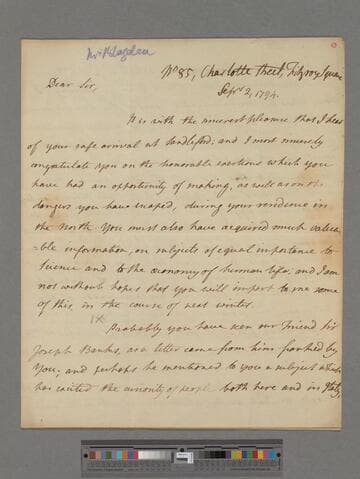 Mr. McLagdan
No. 85, Charlotte Street, Fitzroy Square
Sepr. 2, 1794.
Dear Sir,
It is with the sincerest pleasure that I hear
of your safe arrival at Sandleford; and I most sincerely
congratulate you on the honorable exertions which you
have had an opportunity of making, as well as on the
dangers you have escaped, during your residence in
the North. You must also have acquired much valua-
=ble information, on subjects of equal importance to
science and to the œconomy of human life; and I am
not without hopes that you will impart to me some
of this, in the course of next winter.
Probably you have seen our friend Sir
Joseph Banks, as a letter came from him franked by
you; and perhaps he mentioned to you a subject which
has excited the curiosity of people both here and in Italy,